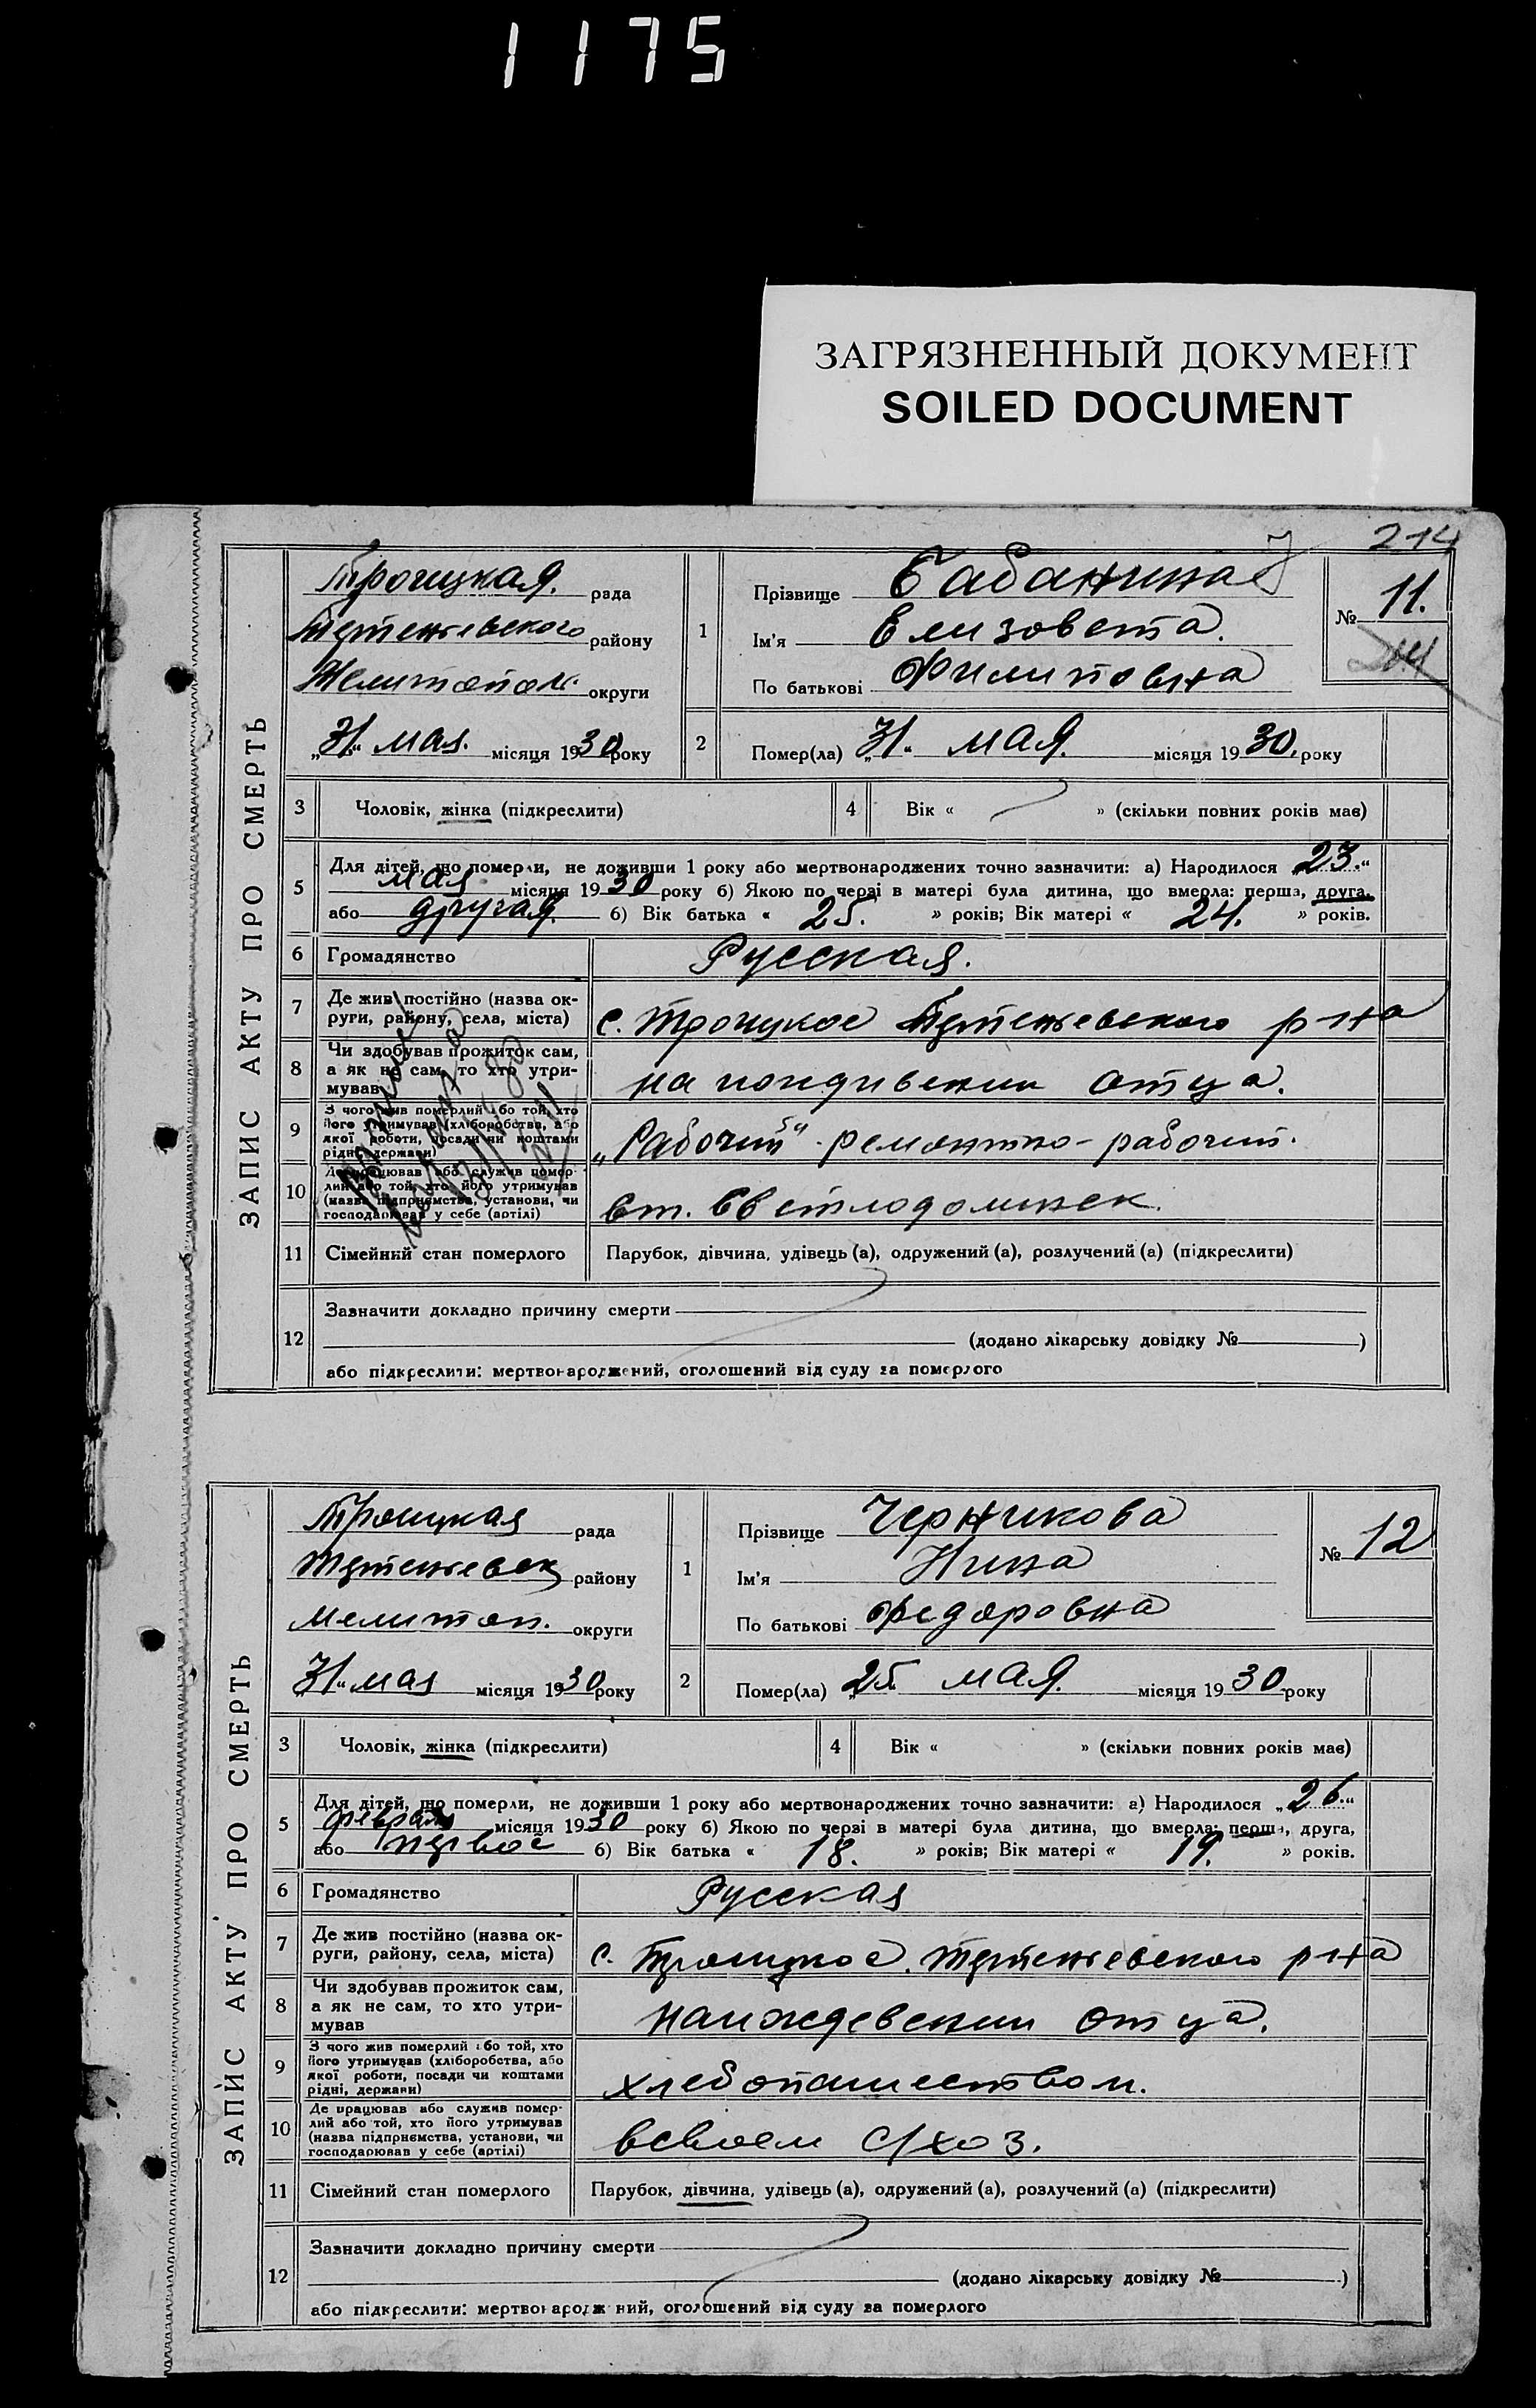 1175
ЗАГРЯЗНЕННЫЙ ДОКУМЕНТ
SOILED DOCUMENT
214
ЗАПИС АКТУ ПРО СМЕРТЬ
Троицкая. рада
району
Мелитопол. округи
„31“ мая. місяця 1930 року
1
Прізвище Бабанина
Ім'я Елизовета.
По батькові Филиповна
№ 11.
2 Помер(ла) „31“ мая. місяця 1930. року
3 Чоловік, жінка (підкреслити)
4 Вік « » (скільки повних років мав)
5 Для дітей, що померли, не доживши 1 року або мертвонароджених точно зазначити: а) Народилося „23“
мая місяця 1930 року б) Якою по черзі в матері була дитина, що вмерла: перша, друга,
або другая. б) Вік батька « 25. » років; Вік матері « 24. » років.
6 Громадянство Русская.
7 Де жив постійно (назва округи, району, села, міста) с. Троицкое р-на
8 Чи здобував прожиток сам, а як не сам, то хто утримував на отца.
9 З чого жив померлий або той, хто його утримував (хліборобства, або якої роботи, посади чи коштами рідні, держави) „Рабочий“ - ремонтно-рабочий.
10 Де працював або служив померлий або той, хто його утримував (назва підприємства, установи, чи господарював у себе (артілі) ст. Светлодолинск.
11 Сімейний стан померлого Парубок, дівчина, удівець (а), одружений (а), розлучений (а) (підкреслити)
12 Зазначити докладно причину смерти
(додано лікарську довідку № )
або підкреслити: мертвонароджений, оголошений від суду за померлого
ЗАПИС АКТУ ПРО СМЕРТЬ
Троицкая рада
району
Мелитоп. округи
„31“ мая місяця 1930 року
1
Прізвище Черникова
Ім'я Нина
По батькові Федоровна
№ 12
2 Помер(ла) „25 мая. місяця 1930 року
3 Чоловік, жінка (підкреслити)
4 Вік « » (скільки повних років мав)
5 Для дітей, що померли, не доживши 1 року або мертвонароджених точно зазначити: а) Народилося „26“
февраля місяця 1930 року б) Якою по черзі в матері була дитина, що вмерла: перша, друга,
або первое б) Вік батька « 18. » років; Вік матері « 19. » років.
6 Громадянство Русская
7 Де жив постійно (назва округи, району, села, міста) с. Троицкое. р-на
8 Чи здобував прожиток сам, а як не сам, то хто утримував наиждевении отца.
9 З чого жив померлий або той, хто його утримував (хліборобства, або якої роботи, посади чи коштами рідні, держави) хлебопашеством.
10 Де працював або служив померлий або той, хто його утримував (назва підприємства, установи, чи господарював у себе (артілі) всвоем с/хоз.
11 Сімейний стан померлого Парубок, дівчина, удівець (а), одружений (а), розлучений (а) (підкреслити)
12 Зазначити докладно причину смерти
(додано лікарську довідку № )
або підкреслити: мертвонароджений, оголошений від суду за померлого